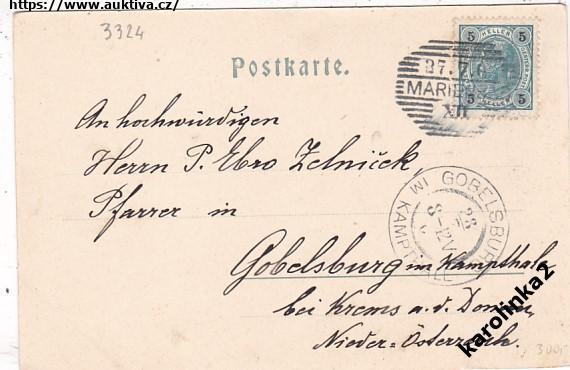 https://www.auktiva.cz/
3324
Postkarte.
5 HELLER 5
5 HELLER 5
27.7.0
XII
An hochwürdigen
Herrn P. Ebro Zelníček,
Pfarrer in
GOBELSBURG IM KAMPTHALE
28
Gobelsburg im Kampthale
bei Krems a. d. Donau,
Nieder=Österreich.
karolinka2